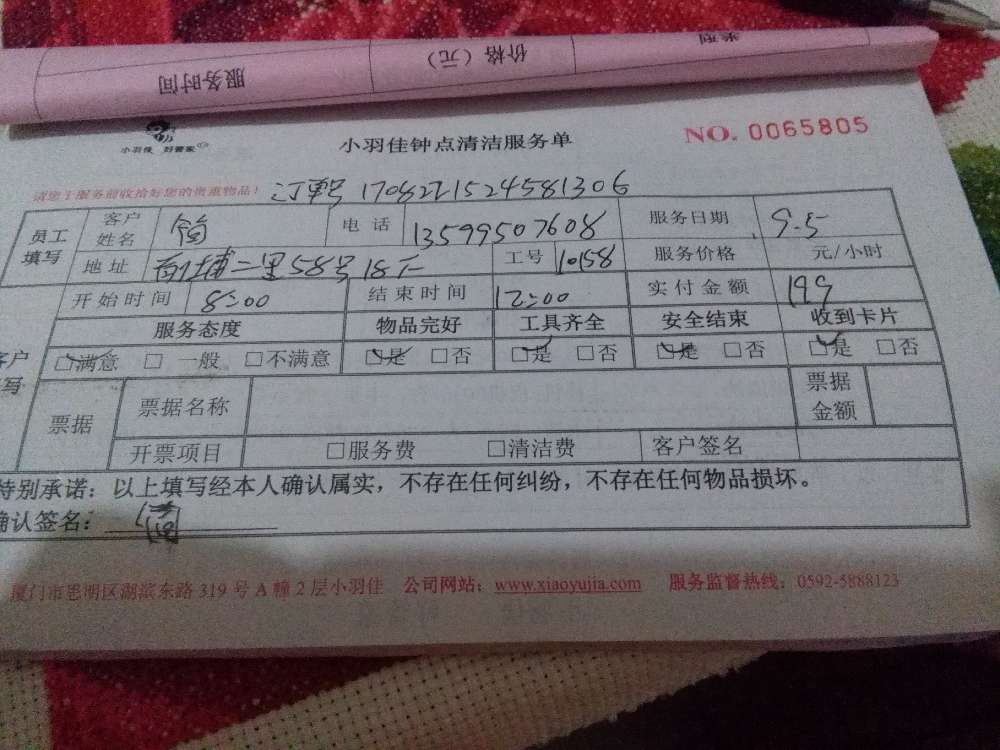 服务时间 价格（元） 类别
小羽佳 好管家
小羽佳钟点清洁服务单 NO. 0065805
请您于服务前收拾好您的贵重物品！ 订单号 1708221524581306
员工填写 客户姓名 电话 13599507608 服务日期 9.5
地址 二里58号18 工号 10158 服务价格 元/小时
开始时间 8:00 结束时间 12:00 实付金额 199
服务态度 物品完好 工具齐全 安全结束 收到卡片
客户填写 ☑满意 □ 一般 □不满意 ☑是 □否 ☑是 □否 ☑是 □否 ☑是 □否
票据 票据名称 票据金额
开票项目 □服务费 □清洁费 客户签名
特别承诺：以上填写经本人确认属实，不存在任何纠纷，不存在任何物品损坏。
确认签名：
厦门市思明区湖滨东路 319 号 A 幢 2 层小羽佳 公司网站：www.xiaoyujia.com 服务监督热线：0592-5888123